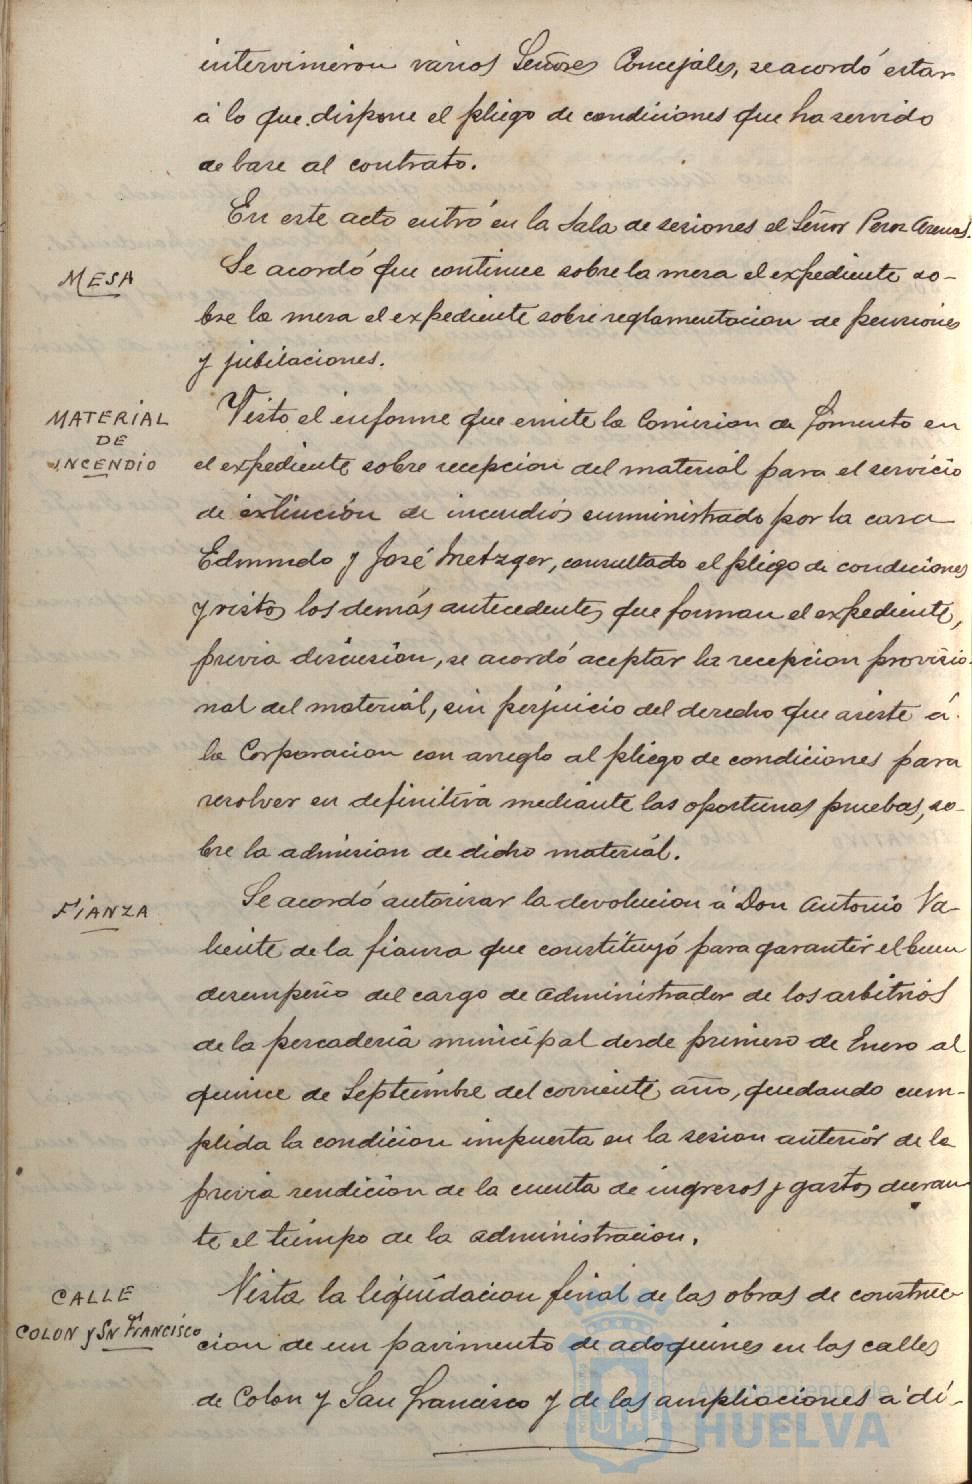 intervinieron varios Señores Concejales, se acordó estar
á lo que dispone el pliego de condiciones que ha servido
de base al contrato.
En este acto entró en la Sala de sesiones el Señor Perez Arenas.
MESA
Se acordó que continue sobre la mesa el expediente so-
bre la mesa el expediente sobre reglamentacion de pensiones
y jubilaciones.
MATERIAL
DE
INCENDIO
Visto el informe que emite la Comision de Fomento en
el expediente sobre recepcion del material para el servicio
de extinción de incendios suministrado por la casa
Edmundo y José Metzger, consultado el pliego de condiciones
y vistos los demás antecedentes que forman el expediente,
previa discusión, se acordó aceptar la recepcion provisio-
nal del material, sin perjuicio del derecho que asiste á
la Corporacion con arreglo al pliego de condiciones para
resolver en definitiva mediante las oportunas pruebas, so-
bre la admision de dicho material.
FIANZA
Se acordó autorisar la devolucion á Don Antonio Va-
liente de la fianza que constituyó para garantir el buen
desempeño del cargo de Administrador de los arbitrios
de la pescaderia municipal desde primero de Enero al
quince de Septiembre del corriente año, quedando cum-
plida la condicion impuesta en la sesion anterior de la
previa rendición de la cuenta de ingresos y gastos duran-
te el tiempo de la administracion.
CALLE
COLON y Sn FRANCISCO
Vista la liquidacion final de las obras de construc-
cion de un pavimento de adoquines en las calles
de Colon y San Francisco y de las ampliaciones á di-
Ayuntamiento de
HUELVA